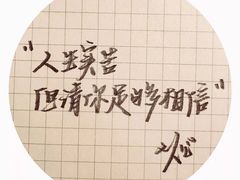 "人生实苦
但请你足够相信"